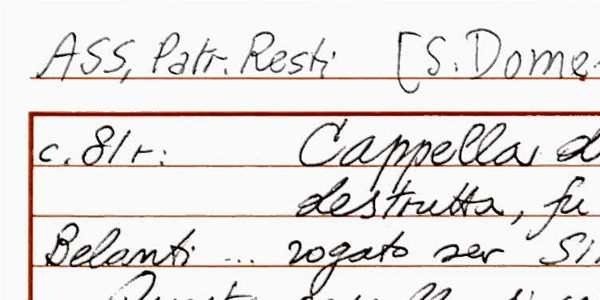 ASS, Patr. Resti [S. Dome
c. 81r: Cappella d
destrutta, fu
Belanti ... rogato ser Si